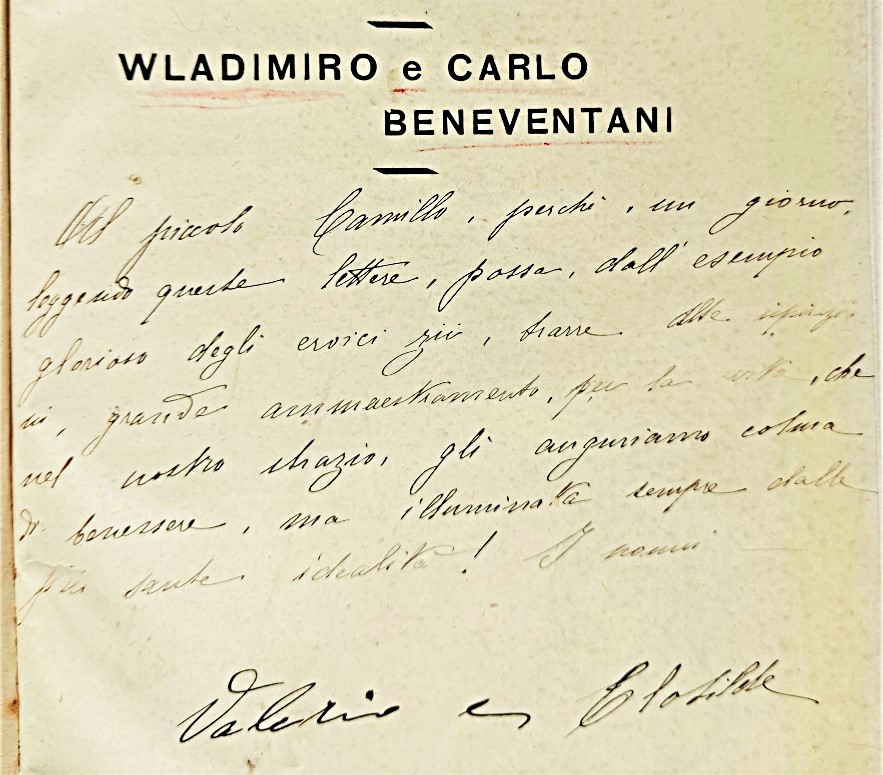 WLADIMIRO e CARLO
BENEVENTANI
Al piccolo Camillo, perchè, un giorno,
leggendo queste lettere, possa, dall'esempio
glorioso degli eroici zii, trarre alte ispirazio
ni, grande ammaestramento, per la vita, che
nel nostro strazio, gli auguriamo colma
di benessere, ma illuminata sempre dalle
più sante idealità! I nonni
Valerio e Clotilde